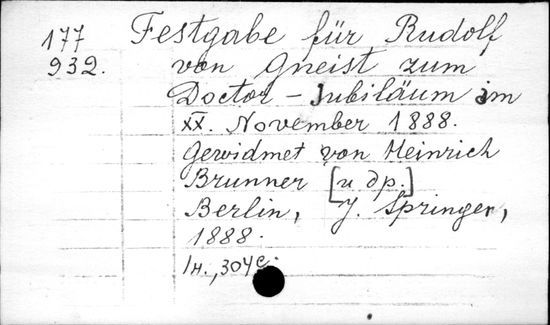 177
932.
Festgabe für Rudolf
von Gneist zum
Doctor - Jubiläum am
XX. November 1888.
Gewidmet von Heinrich
Brunner [и др.]
Berlin, J. Springer,
1888.
1н., 304 с.